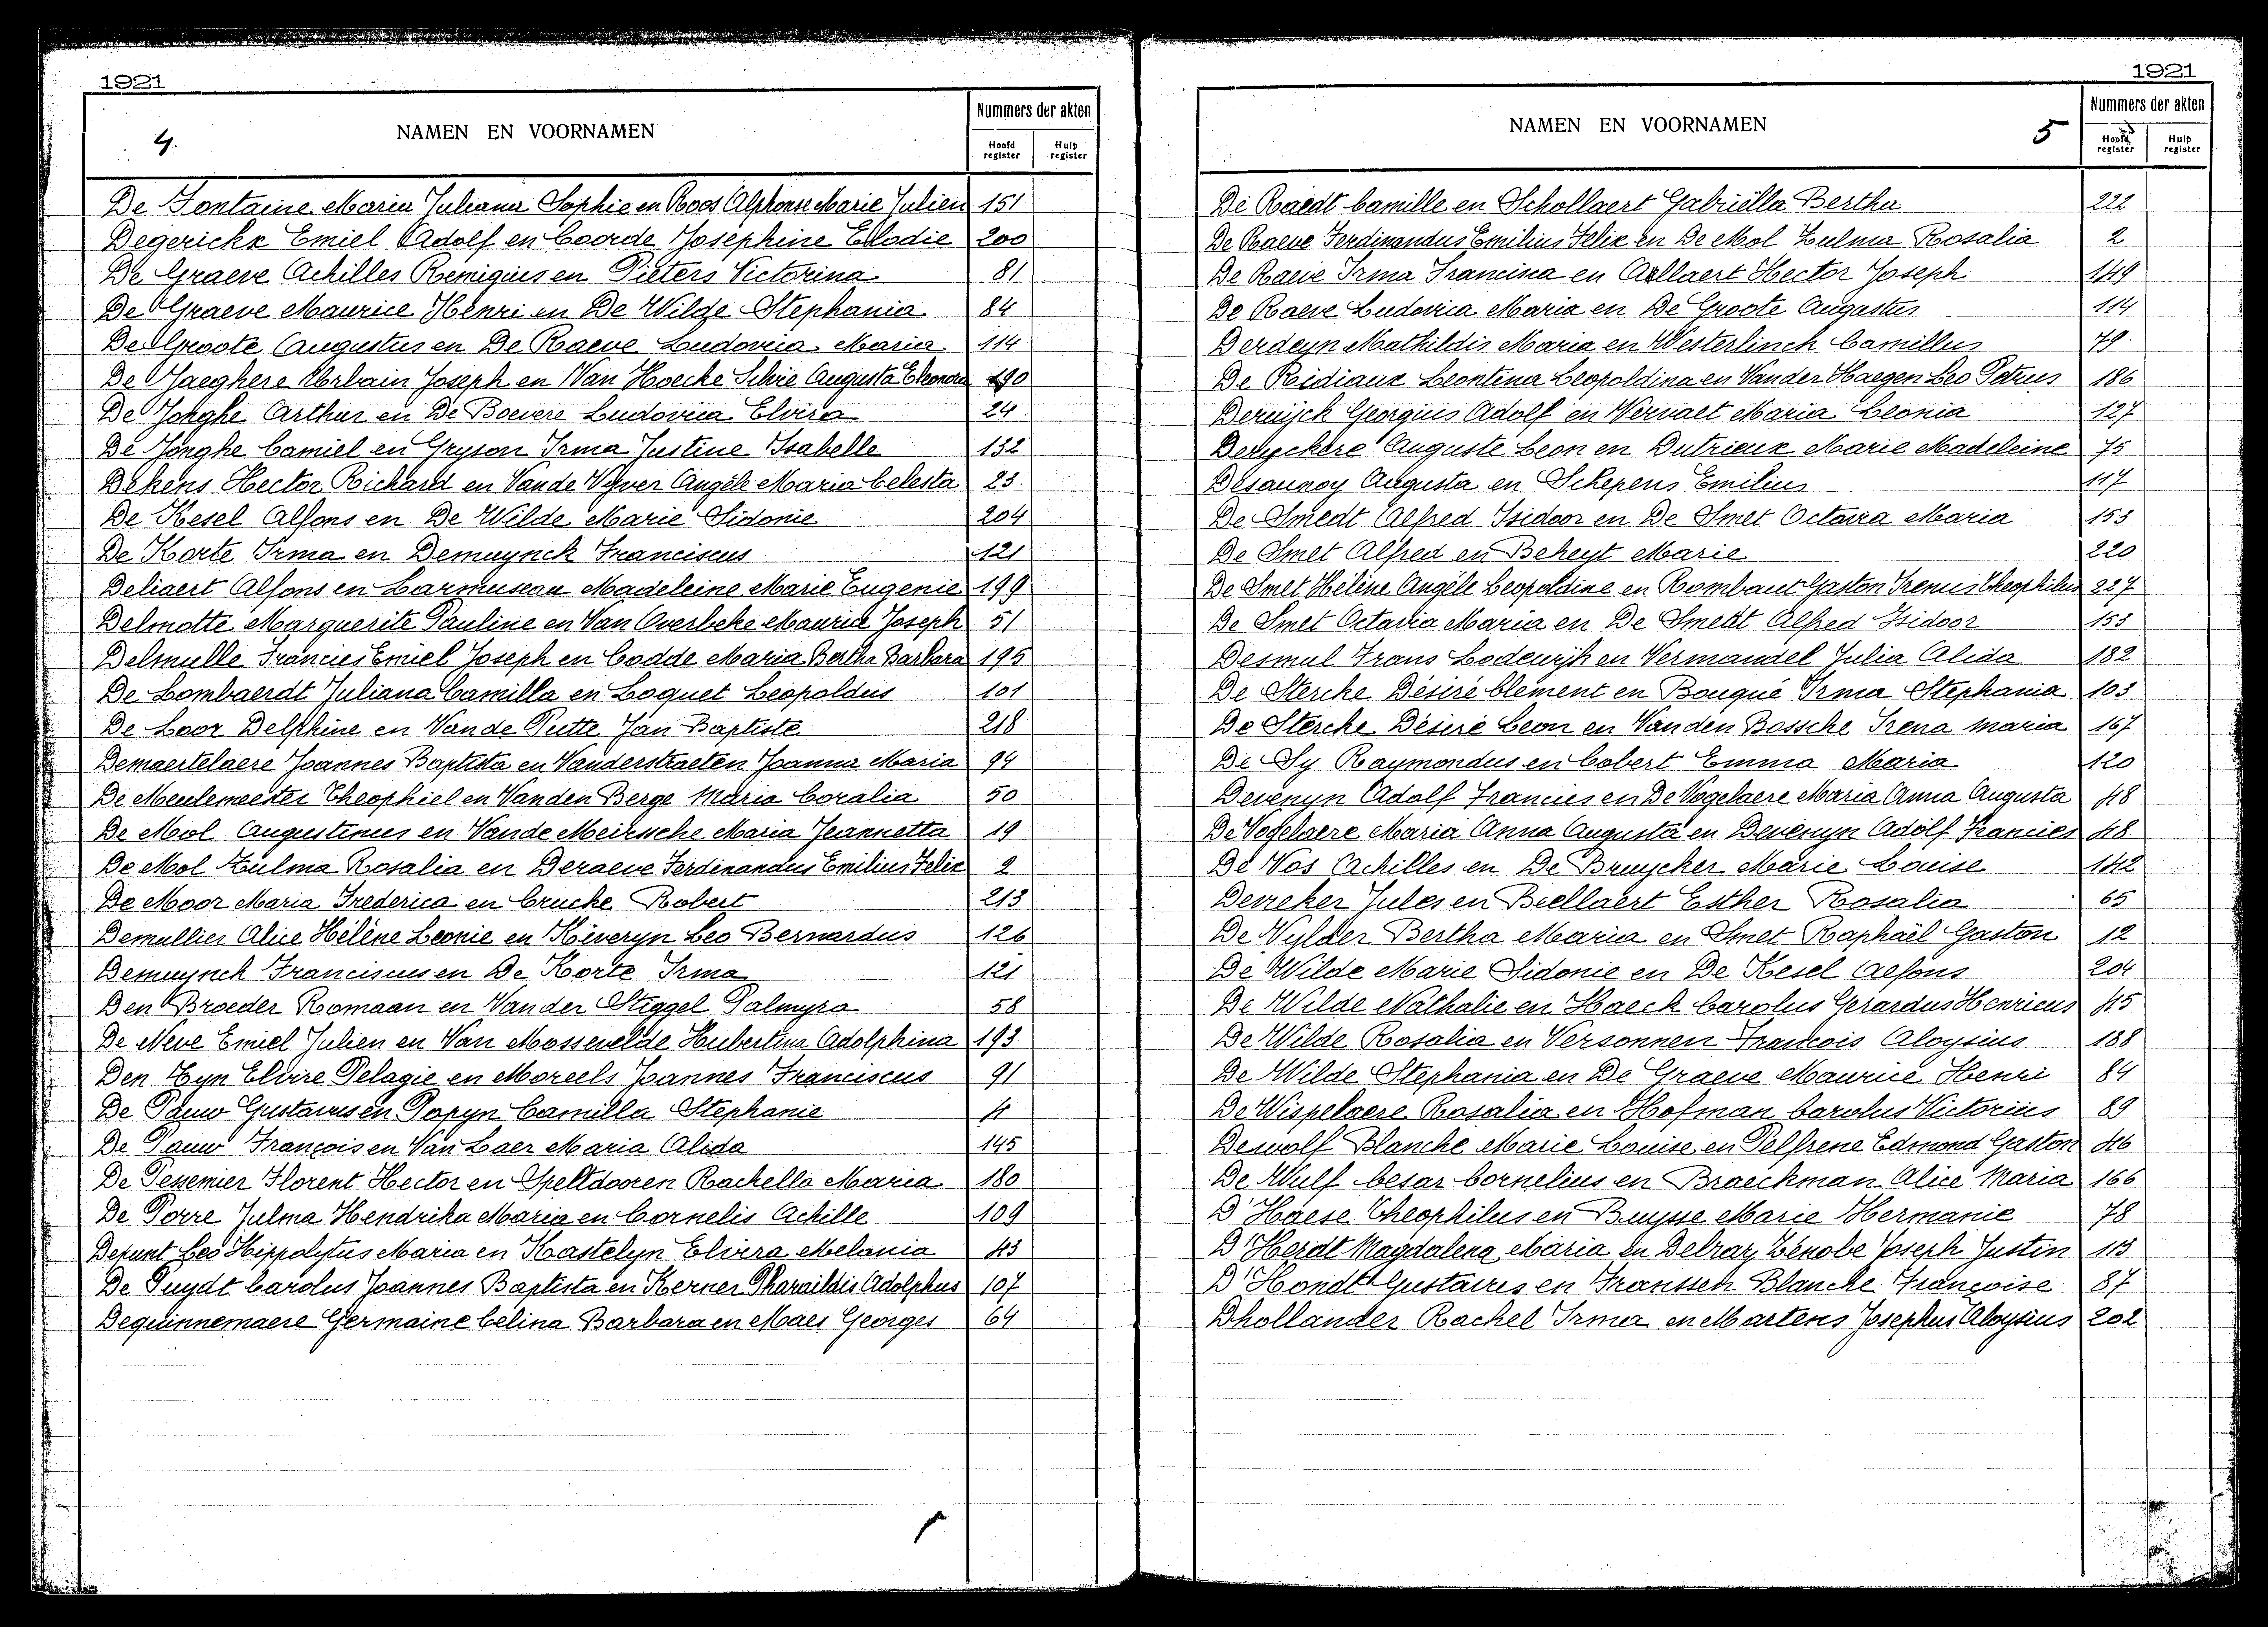 1921
4.
NAMEN EN VOORNAMEN
Nummers der akten
Hoofd register
Hulp register
De Fontaine Maria Juliana Sophie en Roos Alphonse Marie Julien 151
Degerickx Emiel Adolf en Coorde Josephine Elodie 200
De Graeve Achilles Remigius en Pieters Victorina 81
De Graeve Maurice Henri en De Wilde Stephania 84
De Groote Augustus en De Raeve Ludovica Maria 114
De Jaeghere Urbain Joseph en Van Hoecke Silvie Augusta Eleonora 190
De Jonghe Arthur en De Boevere Ludovica Elvira 24
De Jonghe Camiel en Gryson Irma Justine Isabelle 132
Dekens Hector Richard en Vande Vyver Angèle Maria Celesta 23
De Kesel Alfons en De Wilde Marie Sidonie 204
De Korte Irma en Demuynck Franciscus 121
Deliaert Alfons en Larmuseau Madeleine Marie Eugenie 199
Delmotte Marguerite Pauline en Van Overbeke Maurice Joseph 51
Delmulle Francies Emiel Joseph en Codde Maria Bertha Barbara 195
De Lombaerdt Juliana Camilla en Loquet Leopoldus 101
De Loor Delphine en Van de Putte Jan Baptiste 218
Demaertelaere Joannes Baptista en Vanderstraeten Joanna Maria 94
De Meulemeester Theophiel en Vanden Berge Maria Coralia 50
De Mol Augustinus en Vande Meirsche Maria Jeannetta 19
De Mol Zulma Rosalia en Deraeve Ferdinandus Emilius Felix 2
De Moor Maria Frederica en Cruche Robert 213
Demullier Alice Hélène Leonie en Kéveryn Leo Bernardus 126
Demuynck Franciscus en De Korte Irma 121
Den Broeder Romaan en Van der Stiggel Palmyra 58
De Neve Emiel Julien en Van Mossevelde Hubertina Adolphina 193
Den Tyn Elvire Pelagie en Moreels Joannes Franciscus 91
De Pauw Gustavus en Popyn Camilla Stephanie 4
De Pauw François en Van Laer Maria Alida 145
De Pessemier Florent Hector en Speltdooren Rachella Maria 180
De Porre Julma Hendrika Maria en Cornelis Achille 109
Depunt Leo Hippolytus Maria en Kastelyn Elvira Melania 43
De Puydt Carolus Joannes Baptista en Kerner Pharaildis Adolphus 107
Dequinnemaere Germaine Celina Barbara en Maes Georges 64
1921
NAMEN EN VOORNAMEN
5
Nummers der akten
Hoofd register
Hulp register
De Raedt Camille en Schollaert Gabriëlla Bertha 222
De Raeve Ferdinandus Emilius Felix en De Mol Zulma Rosalia 2
De Raeve Irma Francisca en Allaert Hector Joseph 149
De Raeve Ludovica Maria en De Groote Augustus 114
Derdeyn Mathildis Maria en Westerlinch Camillus 79
De Ridiaux Leontina Leopoldina en Vander Haegen Leo Petrus 186
Deruijck Georgius Adolf en Vervaet Maria Leonia 127
Deryckere Auguste Leon en Dutrieux Marie Madeleine 75
Desaunoy Augusta en Schepens Emilius 117
De Smedt Alfred Isidoor en De Smet Octavia Maria 153
De Smet Alfred en Beheyt Marie 220
De Smet Hélène Angèle Leopoldine en Rombaut Gaston Irenus Theophilus 227
De Smet Octavia Maria en De Smedt Alfred Isidoor 153
Desmul Frans Lodewijk en Vermandel Julia Alida 182
De Sterche Désiré Clement en Bouqué Irma Stephania 103
De Sterche Désiré Leon en Vanden Bossche Irena Maria 167
De Sy Raymondus en Cobert Emma Maria 120
Devenyn Adolf Francies en De Vogelaere Maria Anna Augusta 48
De Vogelaere Maria Anna Augusta en Devenyn Adolf Francies 48
De Vos Achilles en De Bruycker Marie Louise 142
Devreker Jules en Biellaert Esther Rosalia 65
De Wylder Bertha Maria en Smet Raphaël Gaston 12
De Wilde Marie Sidonie en De Kesel Alfons 204
De Wilde Nathalie en Haeck Carolus Gerardus Henricus 45
De Wilde Rosalia en Versonnen François Aloysius 188
De Wilde Stephania en De Graeve Maurice Henri 84
De Wispelaere Rosalia en Hofman Carolus Victorius 89
Dewolf Blanche Marie Louise en Pelfrene Edmond Gaston 46
De Wulf Cesar Cornelius en Braeckman Alice Maria 166
D'Haese Theophilus en Buysse Marie Hermanie 78
D'Herdt Magdalena Maria en Delraz Zénobe Joseph Justin 113
D'Hondt Gustavus en Franssen Blanche Françoise 87
Dhollander Rachel Irma en Martens Josephus Aloysius 202